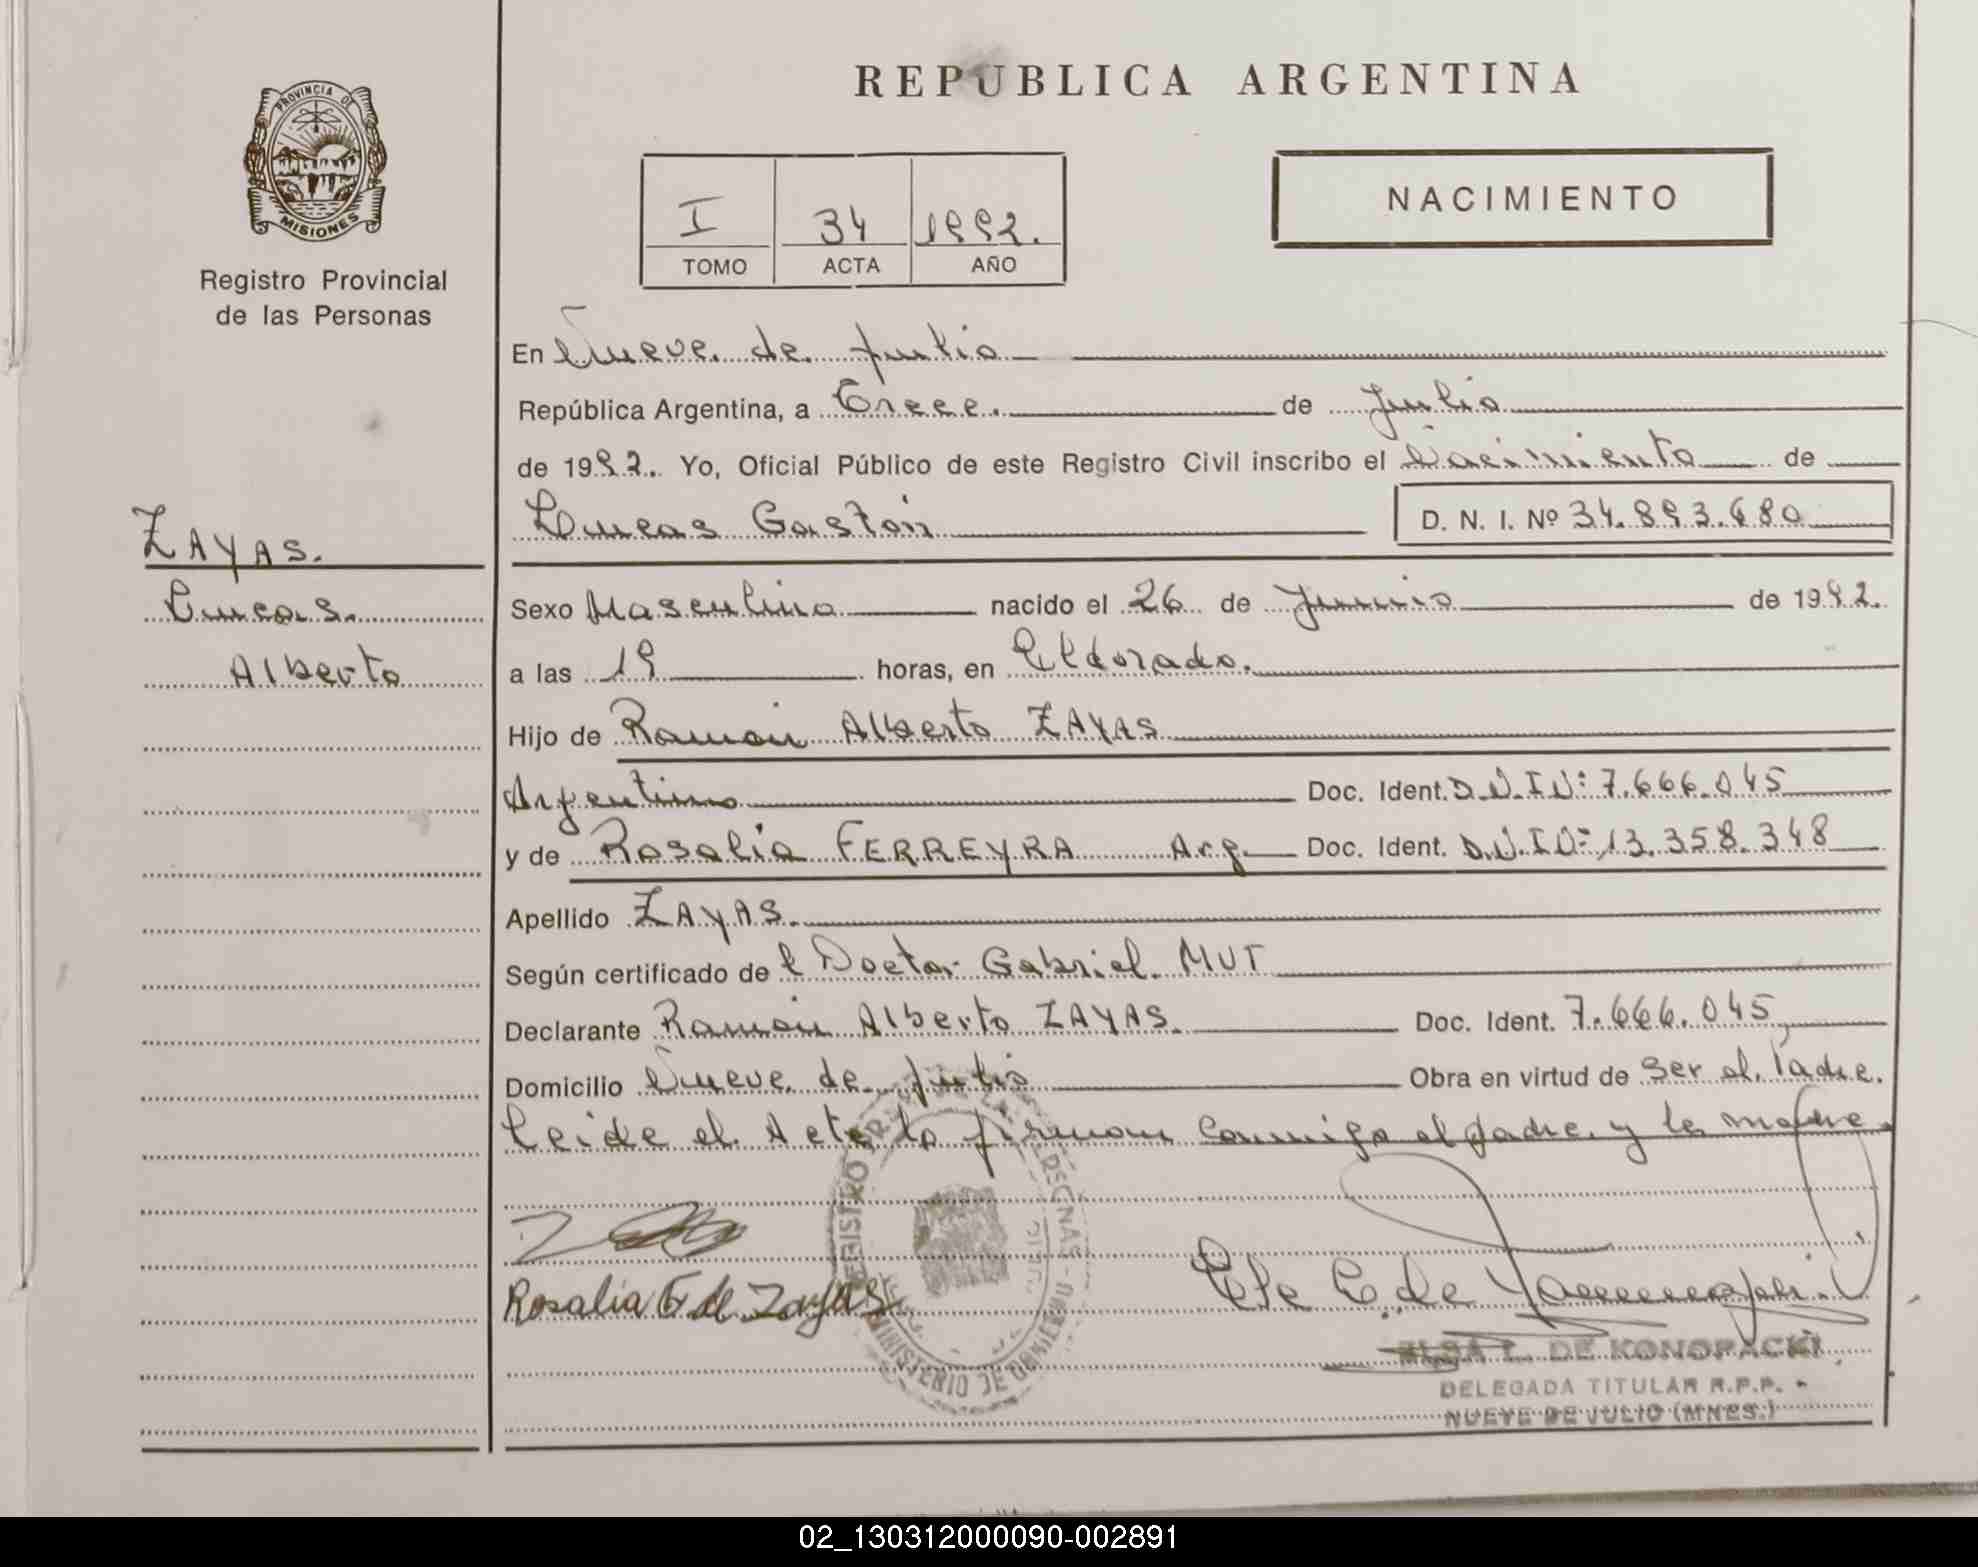 REPUBLICA ARGENTINA
PROVINCIA DE
MISIONES
Registro Provincial
de las Personas
I 34 1992.
TOMO ACTA AÑO
NACIMIENTO
En Nueve de Julio
República Argentina, a Trece. de Julio
de 1992. Yo, Oficial Público de este Registro Civil inscribo el Nacimiento de
Lucas Gastón D. N. I. Nº 34.893.680
ZAYAS.
Lucas.
Alberto
Sexo Masculino nacido el 26 de Junio de 1992.
a las 19 horas, en Eldorado.
Hijo de Ramón Alberto ZAYAS
Argentino Doc. Ident. D.N.I Nº: 7.666.045
y de Rosalia FERREYRA Arg. Doc. Ident. D.N.I Nº: 13.358.348
Apellido ZAYAS.
Según certificado de l Doctor Gabriel MUT
Declarante Ramón Alberto ZAYAS. Doc. Ident. 7.666.045
Domicilio Nueve de Julio Obra en virtud de ser el Padre.
Leida el Acta la firman conmigo el padre y la madre.
Rosalia F de Zayas
REGISTRO PERSONAS
MINISTERIO DE GOBIERNO
ELSA L. DE KONOPACKI
DELEGADA TITULAR R.P.P.
NUEVE DE JULIO (MNES.)
02_130312000090-002891